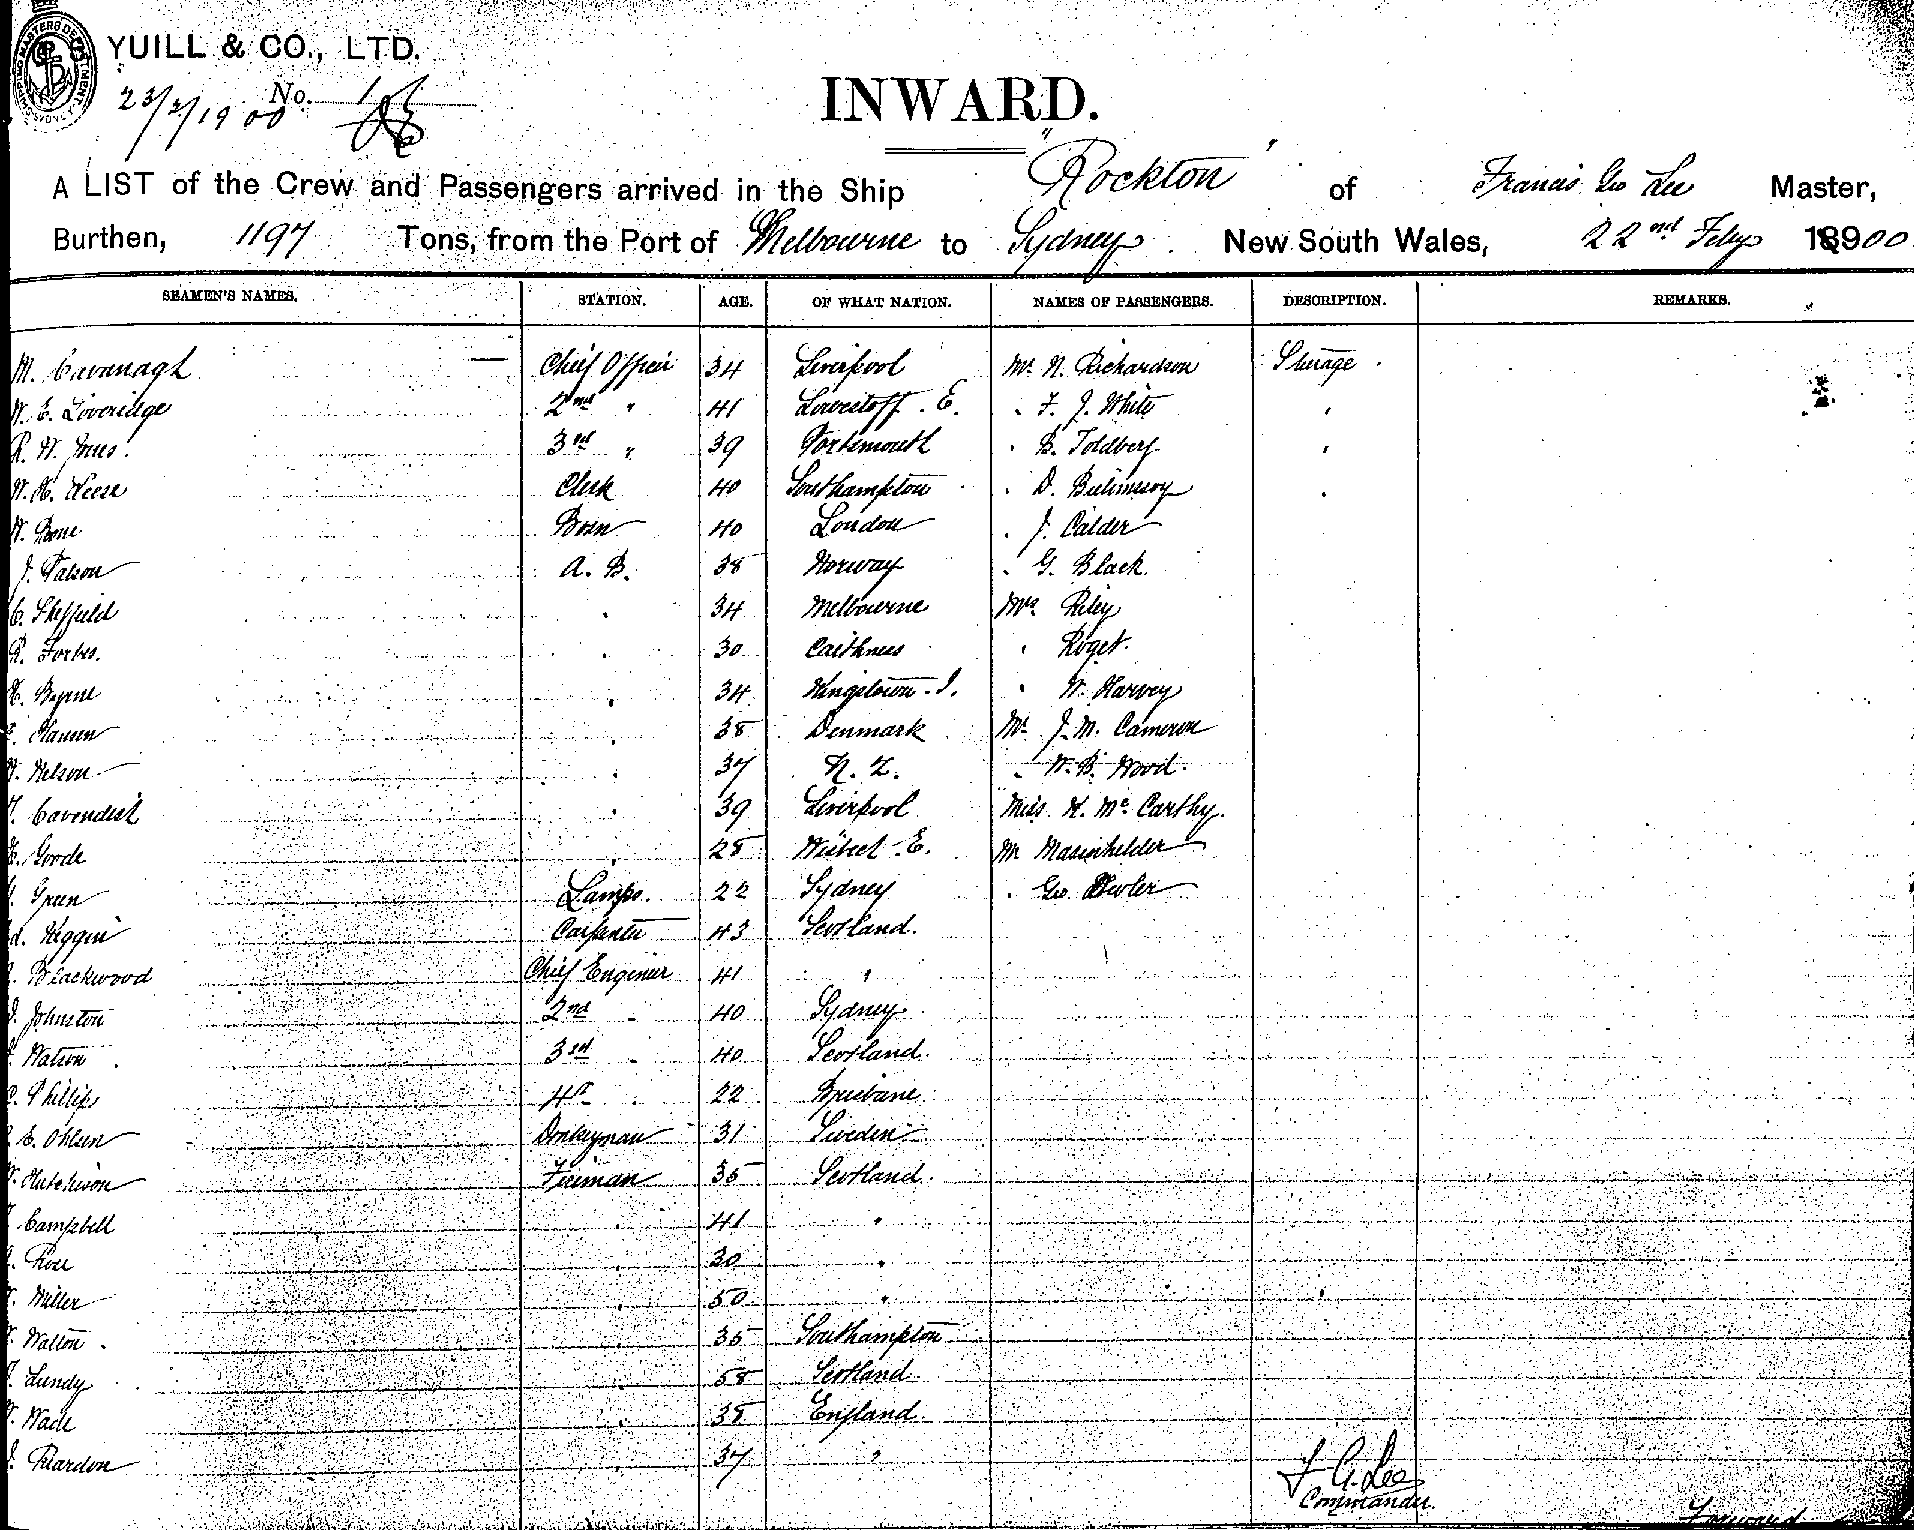 YUILL & CO., LTD.
23/2/1900 No.
INWARD.
A LIST of the Crew and Passengers arrived in the Ship "Rockton" of Francis Geo Lee Master,
Burthen, 1197 Tons, from the Port of Melbourne to Sydney. New South Wales, 22nd Feby 18900
SEAMEN'S NAMES. STATION. AGE. OF WHAT NATION. NAMES OF PASSENGERS. DESCRIPTION. REMARKS.
M. Cavanagh — Chief Officer 34 Liverpool Mr. N. Richardson Steerage
W. E. Loveridge 2nd " 41 Lowestoff. E. " F. J. White "
R. W. Jones. 3rd " 39 Portsmouth " B. Toldberg "
W. H. Weese Clerk 40 Southampton " D. "
W. Bone Bosn 40 London " J. Calder
J. Palson A. B. 38 Norway " G. Black
C. Sheffield " 34 Melbourne Mrs Riley
R. Forbes. " 30 Caithness " Roget.
H. Byrne " 34 Kingstown. I. " W. Harvey
Hansen " 38 Denmark Mr. J. M. Cameron
Nelson " 37 N. Z. " W. B. Wood.
Cavendish " 39 Liverpool Miss K. McCarthy.
Goode " 28 Wisbech. E. Mr
Green Lamps. 22 Sydney " Geo
Higgin Carpenter 43 Scotland.
Blackwood Chief Engineer 41 "
Johnston 2nd " 40 Sydney
Watson 3rd " 40 Scotland.
Phillips 4th " 22 Brisbane
E. Ohlsen Donkeyman 31 Sweden
Hutchison Fireman 35 Scotland.
Campbell " 41 "
Rose " 30 "
Miller " 50 "
Walton " 35 Southampton
Lundy " 58 Scotland
Wade " 38 England
J. Reardon " 37 "
F. G. Lee
Commander.
Forward